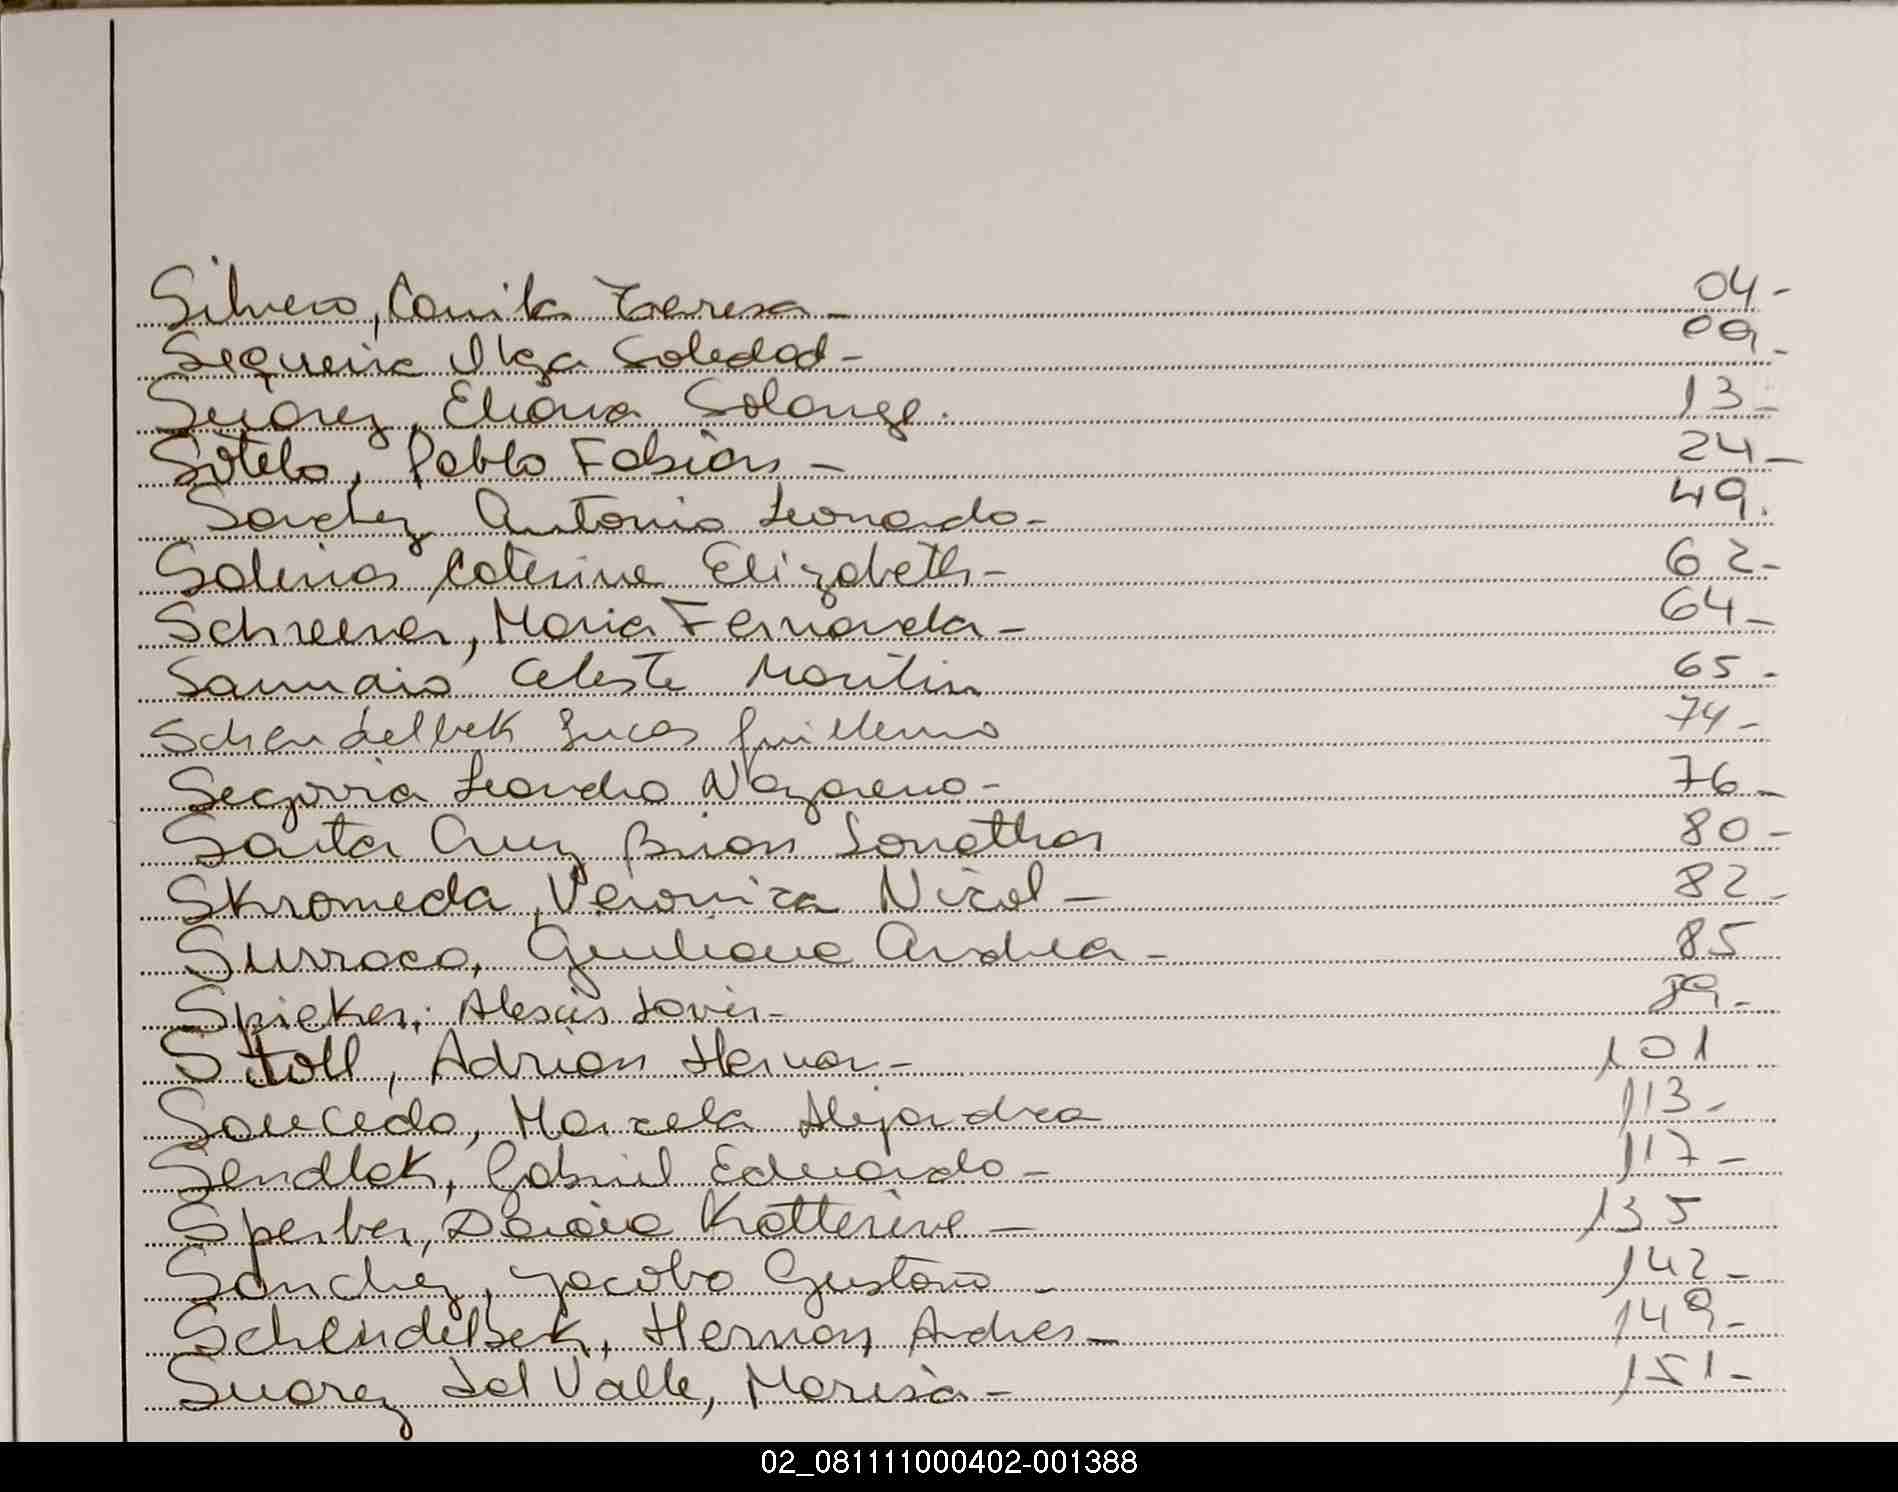 Silvero, Camila Teresa - 04-
Sequeira Ilga Soledad - 09-
Suarez, Eliana Solange. 13-
Sotelo, Pablo Fabian - 24-
Sanchez Antonio Leonardo - 49.
Salinas Caterine Elizabeth - 62-
Schreener, Maria Fernanda - 64-
Samudio Celeste Marilin 65-
Schendelbek Lucas Guillermo 74-
Segovia Leandro Nazareno - 76-
Santa Cruz Brian Jonathan 80-
Skromeda, Veronica Nicol - 82-
Surraco, Giuliana Andrea - 85
Spieker, Alexis Javier - 89-
Stoll, Adrian Hernan - 101
Saucedo, Marcela Alejandra 113-
Sendlak, Gabriel Eduardo - 117-
Sperber, Daiana Katterine - 135
Sanchez, Jacobo Gustavo - 142-
Schendelbek, Hernan, Andres - 149-
Suarez del Valle, Marisa - 151-
02_081111000402-001388